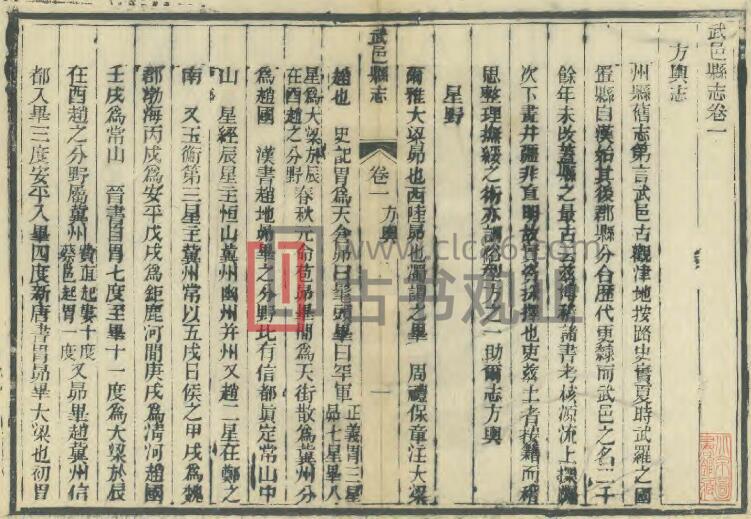 武邑縣志卷一
方輿志
州縣舊志第言武邑古觀津地按路史實夏時武羅之國
置縣自漢始其後郡縣分合歷代更隸而武邑之名二千
餘年未改蓋縣之最古云茲博稽諸書考核源流上探
次下畫井疆非直明故實為採擇也吏茲土者按籍而稽
思整理撫綏之術亦調俗型方之一助爾志方輿
星野
爾雅大梁昴也西陸昴也濁謂之畢 周禮保章注大梁
武邑縣志 卷一 方輿 一
趙也 史記胃為天倉昴曰髦頭畢曰罕車 正義胃三星昴七星畢八
星為大梁於辰在酉趙之分野 春秋元命苞昴畢間為天街散為冀州分
為趙國 漢書趙地昴畢之分野北有信都真定常山中
山 星經辰星主恒山冀州幽州并州又趙二星在鄭之
南 又玉衡第三星主冀州常以五戌日候之甲戌為魏
郡渤海丙戌為安平戊戌為鉅鹿河間庚戌為清河趙國
壬戌為常山 晉書自胃七度至畢十一度為大梁於辰
在酉趙之分野屬冀州 費直起婁十度蔡邕起胃一度 又昴畢趙冀州信
都入畢三度安平入畢四度新唐書胃昴畢大梁也初胃
www.clc86.com
古书观止